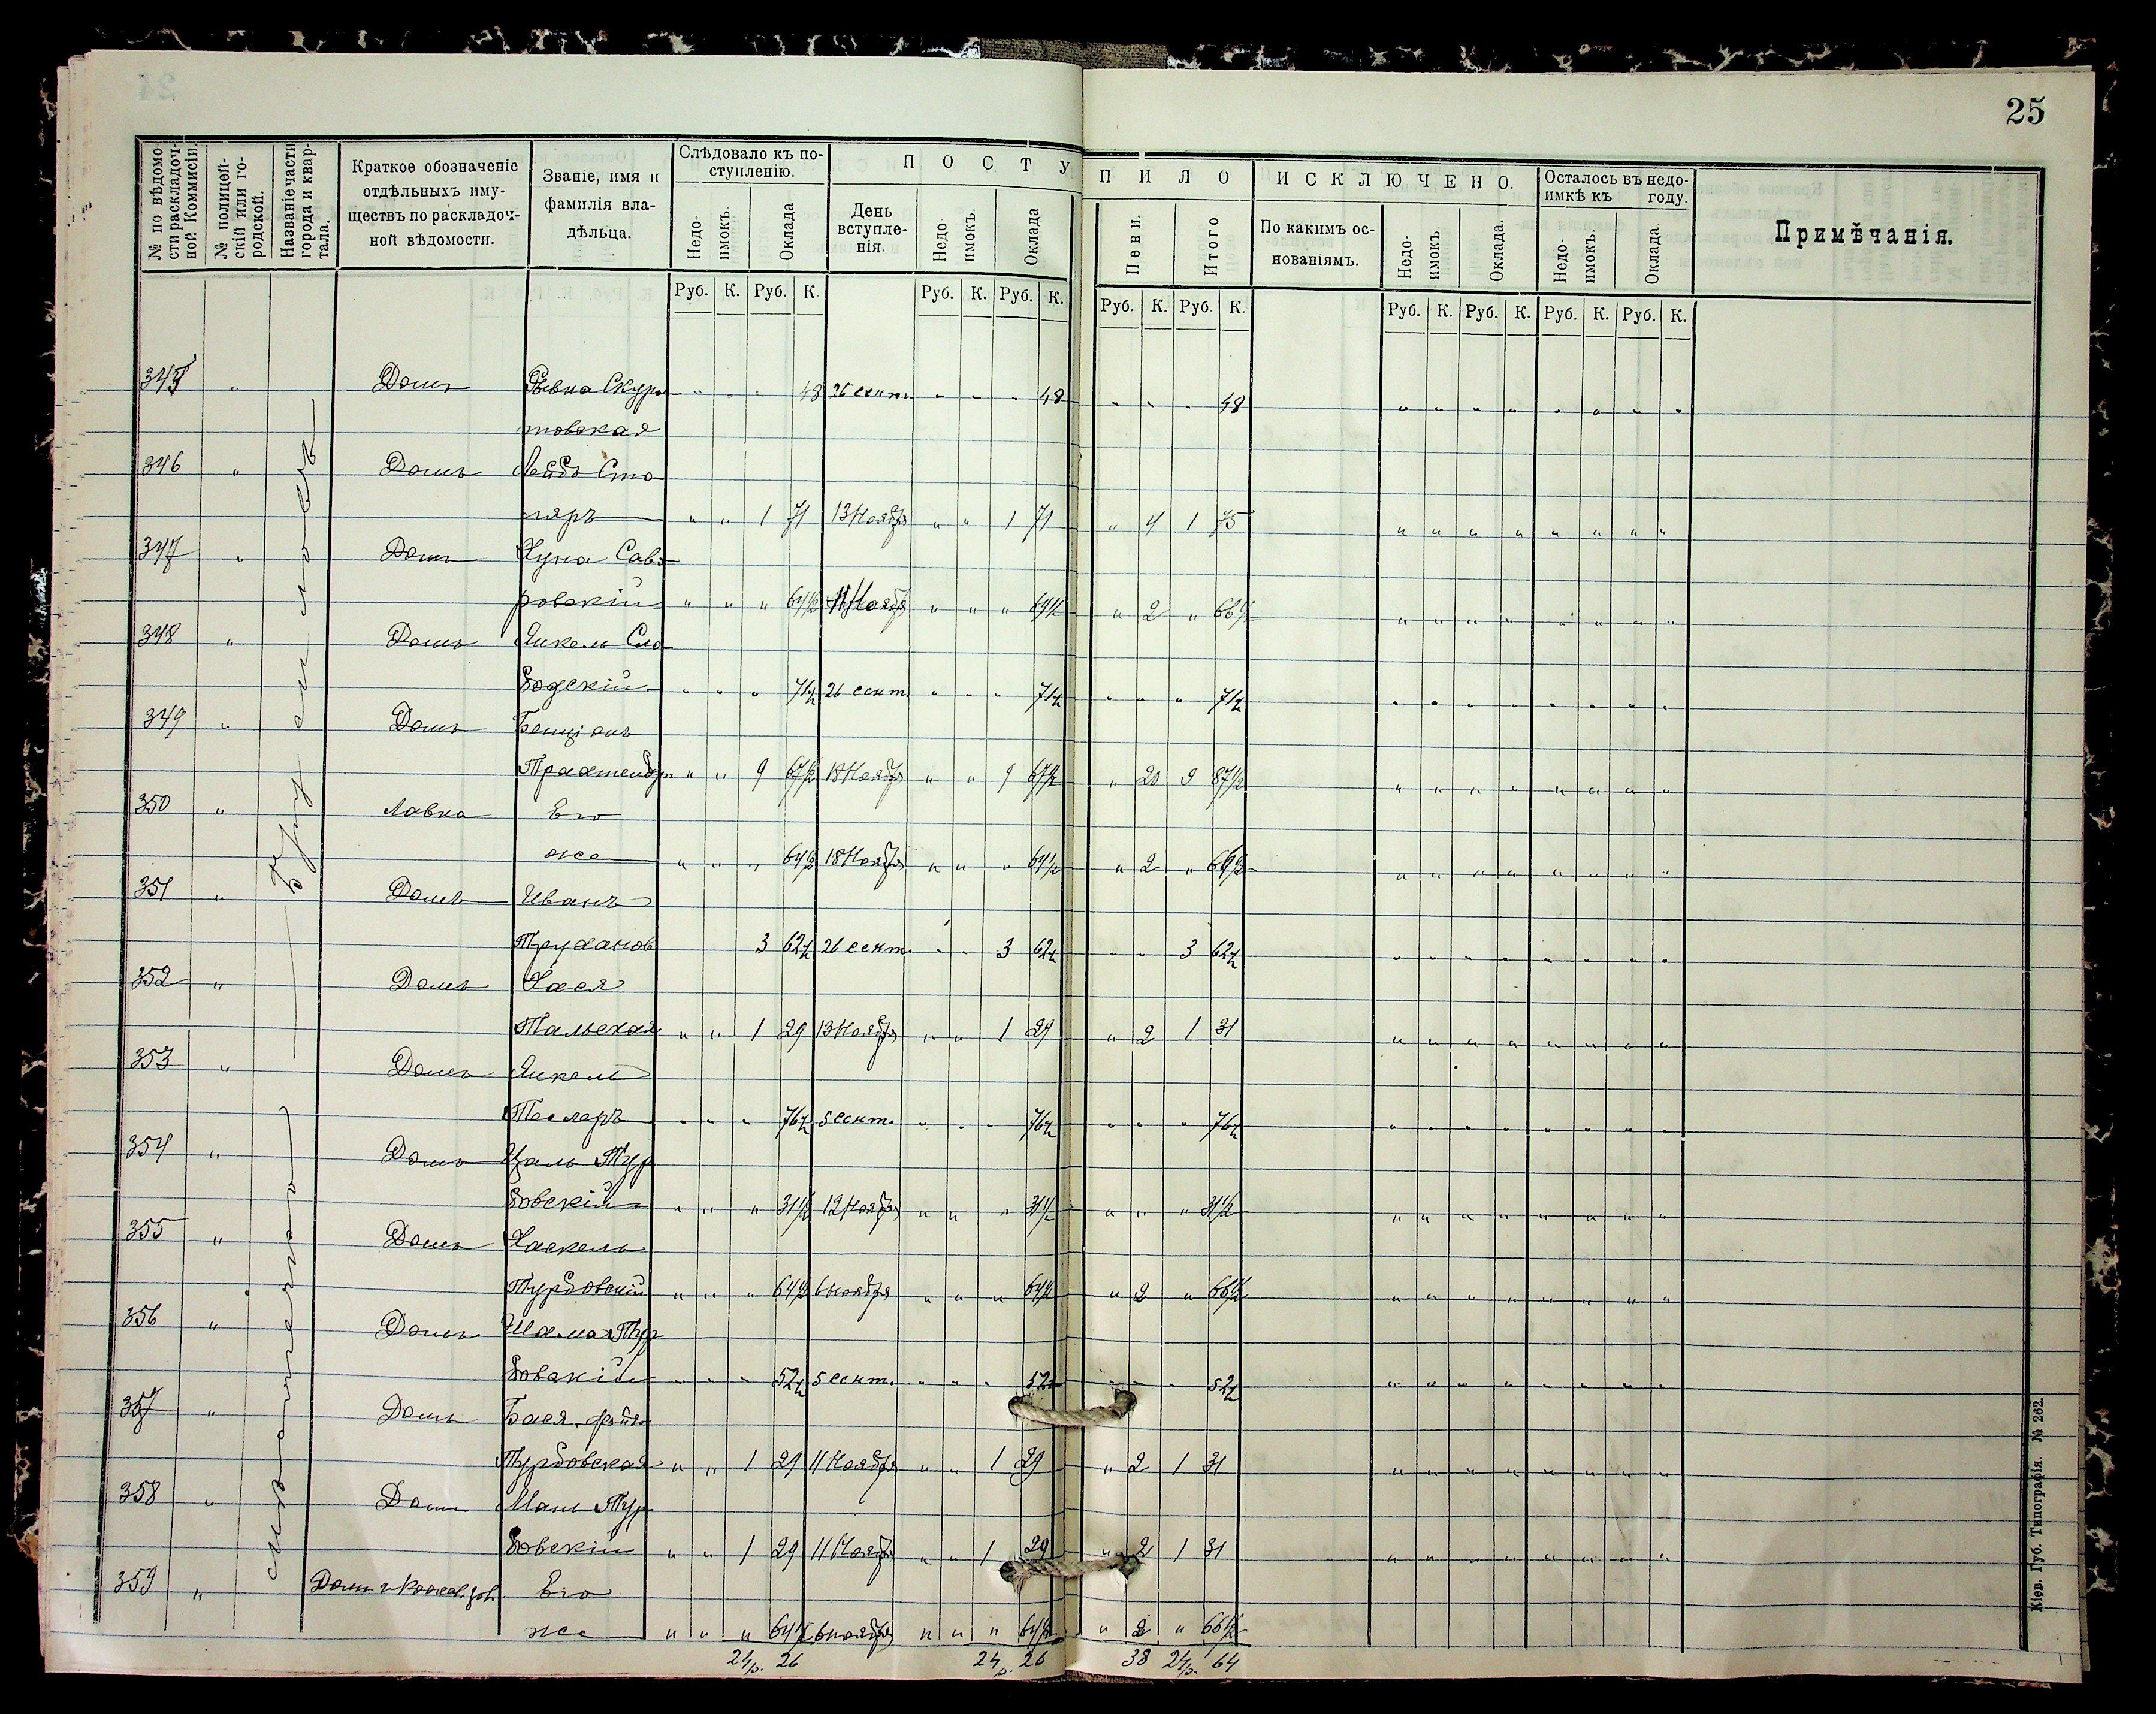 25
№ по вѣдомости раскладочной Коммисіи.
№ полицейскій или городской.
Названіе части города и квартала.
Краткое обозначеніе отдѣльныхъ имуществъ по раскладочной вѣдомости.
Званіе, имя и фамилія владѣльца.
Слѣдовало къ поступленію.
Недоимокъ.
Оклада
П О С Т У П И Л О
День вступленія.
Недоимокъ.
Оклада
Пени.
Итого
И С К Л Ю Ч Е Н О.
По какимъ основаніямъ.
Недоимокъ.
Оклада.
Осталось въ недоимкѣ къ году.
Недоимокъ.
Оклада.
Примѣчанія.
Руб. К. Руб. К. Руб. К. Руб. К. Руб. К. Руб. К. Руб. К. Руб. К. Руб. К. Руб. К.
345 " Домъ Скура " " " 48 26 сент. " " " 48 " " " 48 " " " " " " " "
товская
346 " Домъ Лейбъ Сто
ляръ " " 1 71 13 Ноября " " 1 71 " 4 1 75 " " " " " " " "
347 " Домъ Хуна Сав
ровскій " " " 64½ 11 Ноября " " " 64½ " 2 " 66½ " " " " " " " "
348 " Домъ Янкель Сло
бодскій " " " 71½ 26 сент. " " " 71½ " " " 71½ " " " " " " " "
349 " Домъ Бенціонъ
" " 9 67½ 18 Ноября " " 9 67½ " 20 9 87½ " " " " " " " "
350 " Лавка Его
же " " " 64½ 18 Ноября " " " 64½ " 2 " 66½ " " " " " " " "
351 " Домъ Иванъ
Трухановъ 3 62½ 26 сент. " " 3 62½ " " 3 62½ " " " " " " " "
352 " Домъ Хася
Тальская " " 1 29 13 Ноября " " 1 29 " 2 1 31 " " " " " " " "
353 " Домъ Янкель
Теслеръ " " " 76½ 5 сент. " " " 76½ " " " 76½ " " " " " " " "
354 " Домъ Цаль Тур
бовскій " " " 31½ 12 Ноября " " " 31½ " " " 31½ " " " " " " " "
355 " Домъ Хаскель
Турбовскій " " " 64½ 6 ноября " " " 64½ " 2 " 66½ " " " " " " " "
356 " Домъ Шама Тур
бовскій " " " 52½ 5 сент. " " " 52½ " " " 52½ " " " " " " " "
357 " Домъ Бася
Турбовская " " 1 29 11 Ноября " " 1 29 " 2 1 31 " " " " " " " "
358 " Домъ Тур
бовскій " " 1 29 11 Ноября " " 1 29 " 2 1 31 " " " " " " " "
359 " Домъ Его
же " " " 64½ 6 ноября " " " 64½ " 2 " 66½
24р. 26 24р. 26 38 24р. 64
Кіев. Губ. Типографія. № 262.